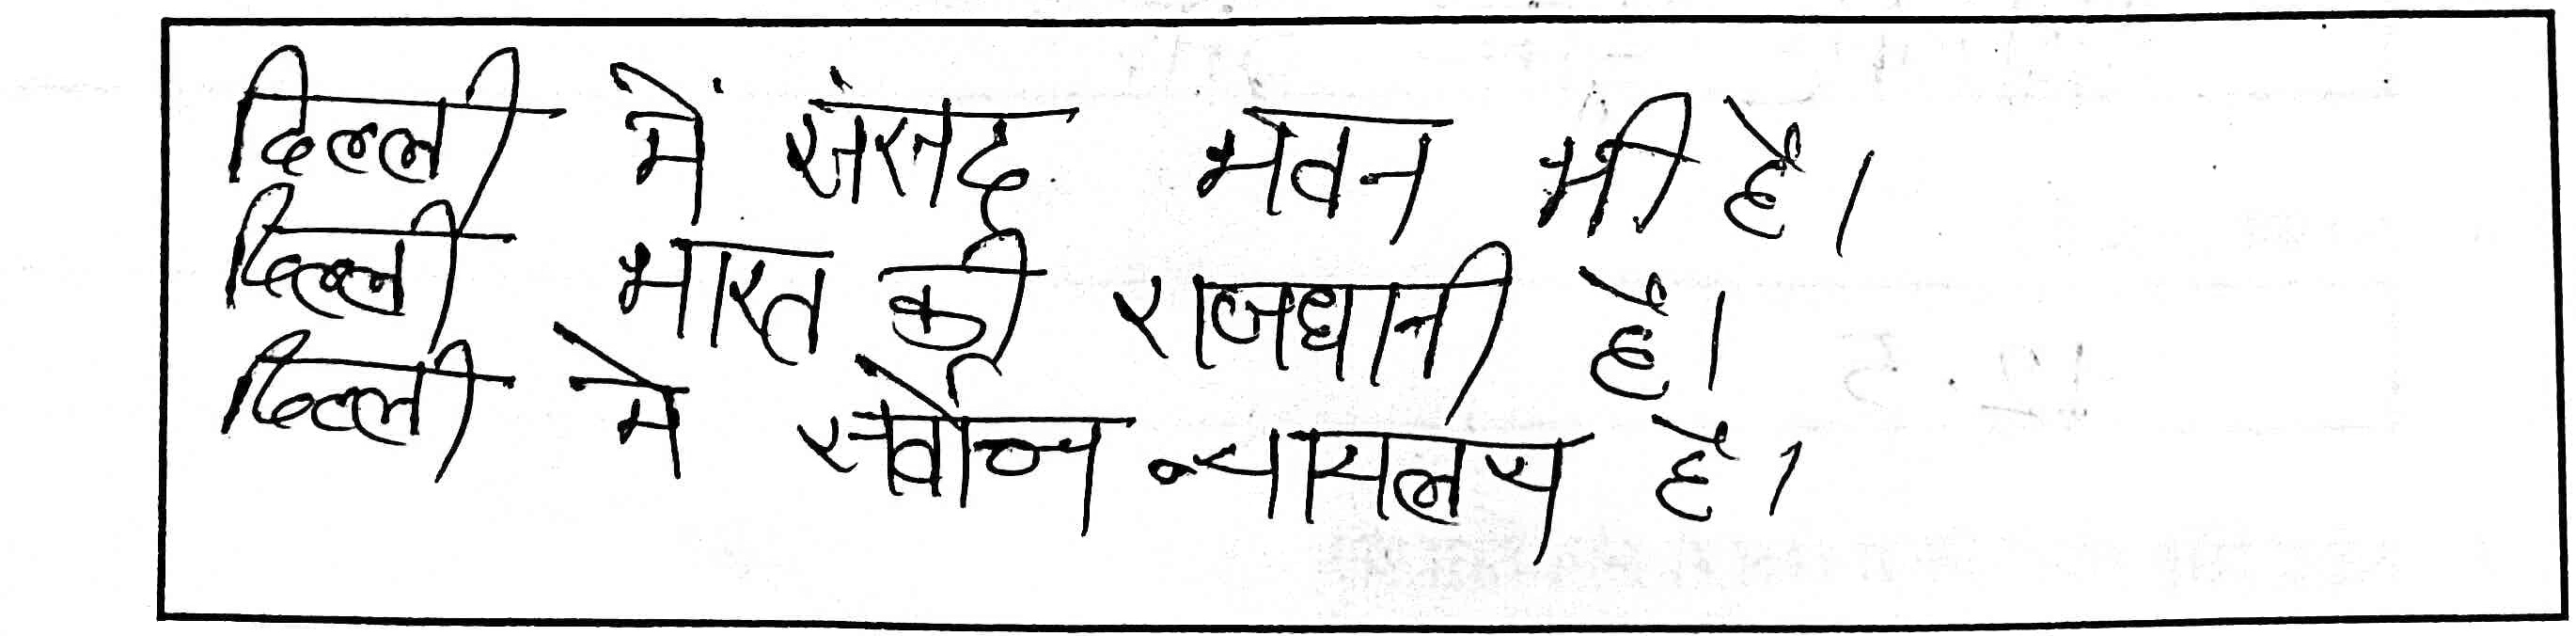 दिल्ली में संसद भवन भी है।
दिल्ली भारत की राजधानी है।
दिल्ली मे सर्वोच्च न्यायलय है।